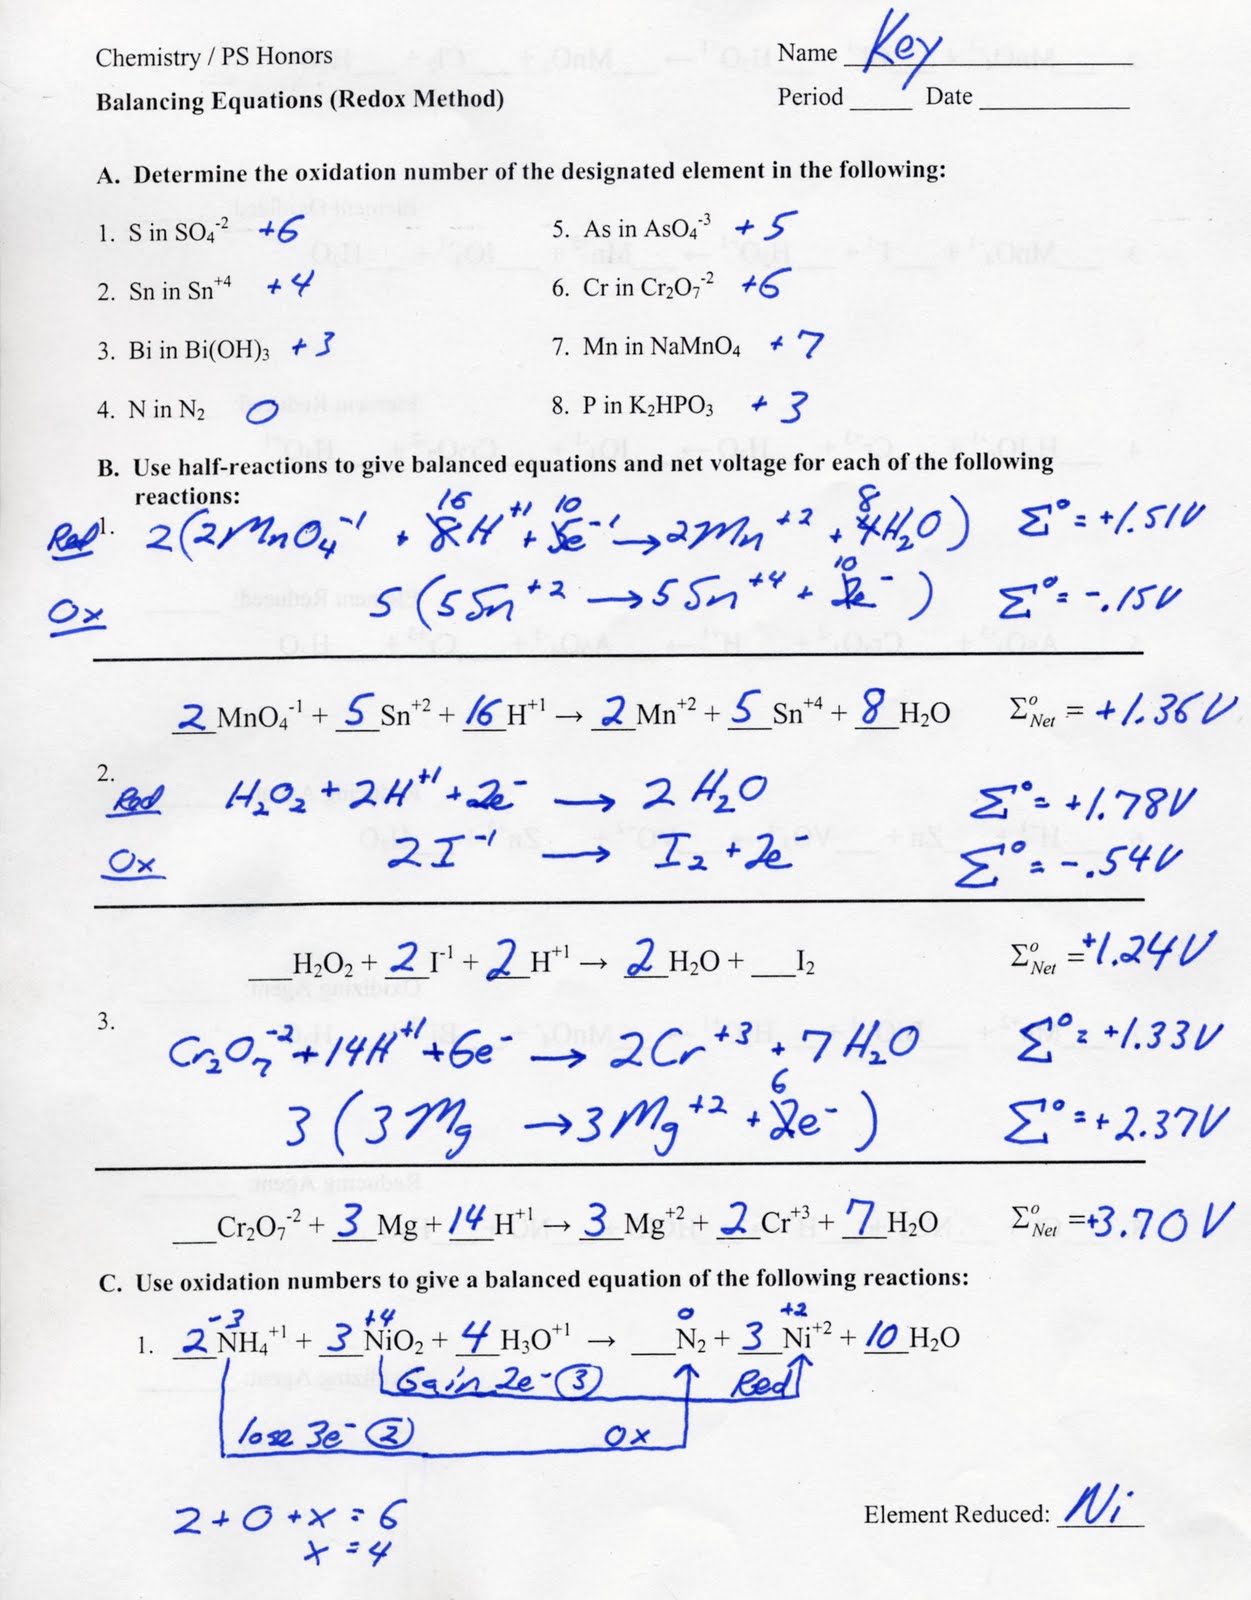 Chemistry / PS Honors
Name Key
Balancing Equations (Redox Method)
Period ____ Date ____
A. Determine the oxidation number of the designated element in the following:
1. S in SO₄⁻² +6
5. As in AsO₄⁻³ +5
2. Sn in Sn⁺⁴ +4
6. Cr in Cr₂O₇⁻² +6
3. Bi in Bi(OH)₃ +3
7. Mn in NaMnO₄ +7
4. N in N₂ 0
8. P in K₂HPO₃ +3
B. Use half-reactions to give balanced equations and net voltage for each of the following
reactions:
16 10 8
Red 1. 2(2MnO₄⁻¹ + 8H⁺¹ + 5e⁻¹ → 2Mn⁺² + 4H₂O) Σ° = +1.51V
10
Ox 5(5Sn⁺² → 5Sn⁺⁴ + 2e⁻) Σ° = -.15V
2 MnO₄⁻¹ + 5 Sn⁺² + 16 H⁺¹ → 2 Mn⁺² + 5 Sn⁺⁴ + 8 H₂O Σ°Net = +1.36V
2.
Red H₂O₂ + 2H⁺¹ + 2e⁻ → 2H₂O Σ° = +1.78V
Ox 2I⁻¹ → I₂ + 2e⁻ Σ° = -.54V
___H₂O₂ + 2 I⁻¹ + 2 H⁺¹ → 2 H₂O + ___I₂ Σ°Net = +1.24V
3.
Cr₂O₇⁻² + 14H⁺¹ + 6e⁻ → 2Cr⁺³ + 7H₂O Σ° = +1.33V
6
3(3Mg → 3Mg⁺² + 2e⁻) Σ° = +2.37V
___Cr₂O₇⁻² + 3 Mg + 14 H⁺¹ → 3 Mg⁺² + 2 Cr⁺³ + 7 H₂O Σ°Net = +3.70V
C. Use oxidation numbers to give a balanced equation of the following reactions:
-3 +4 0 +2
1. 2 NH₄⁺¹ + 3 NiO₂ + 4 H₃O⁺¹ → ___N₂ + 3 Ni⁺² + 10 H₂O
Gain 2e⁻ (3) Red
lose 3e⁻ (2) Ox
2 + 0 + x = 6
Element Reduced: Ni
x = 4